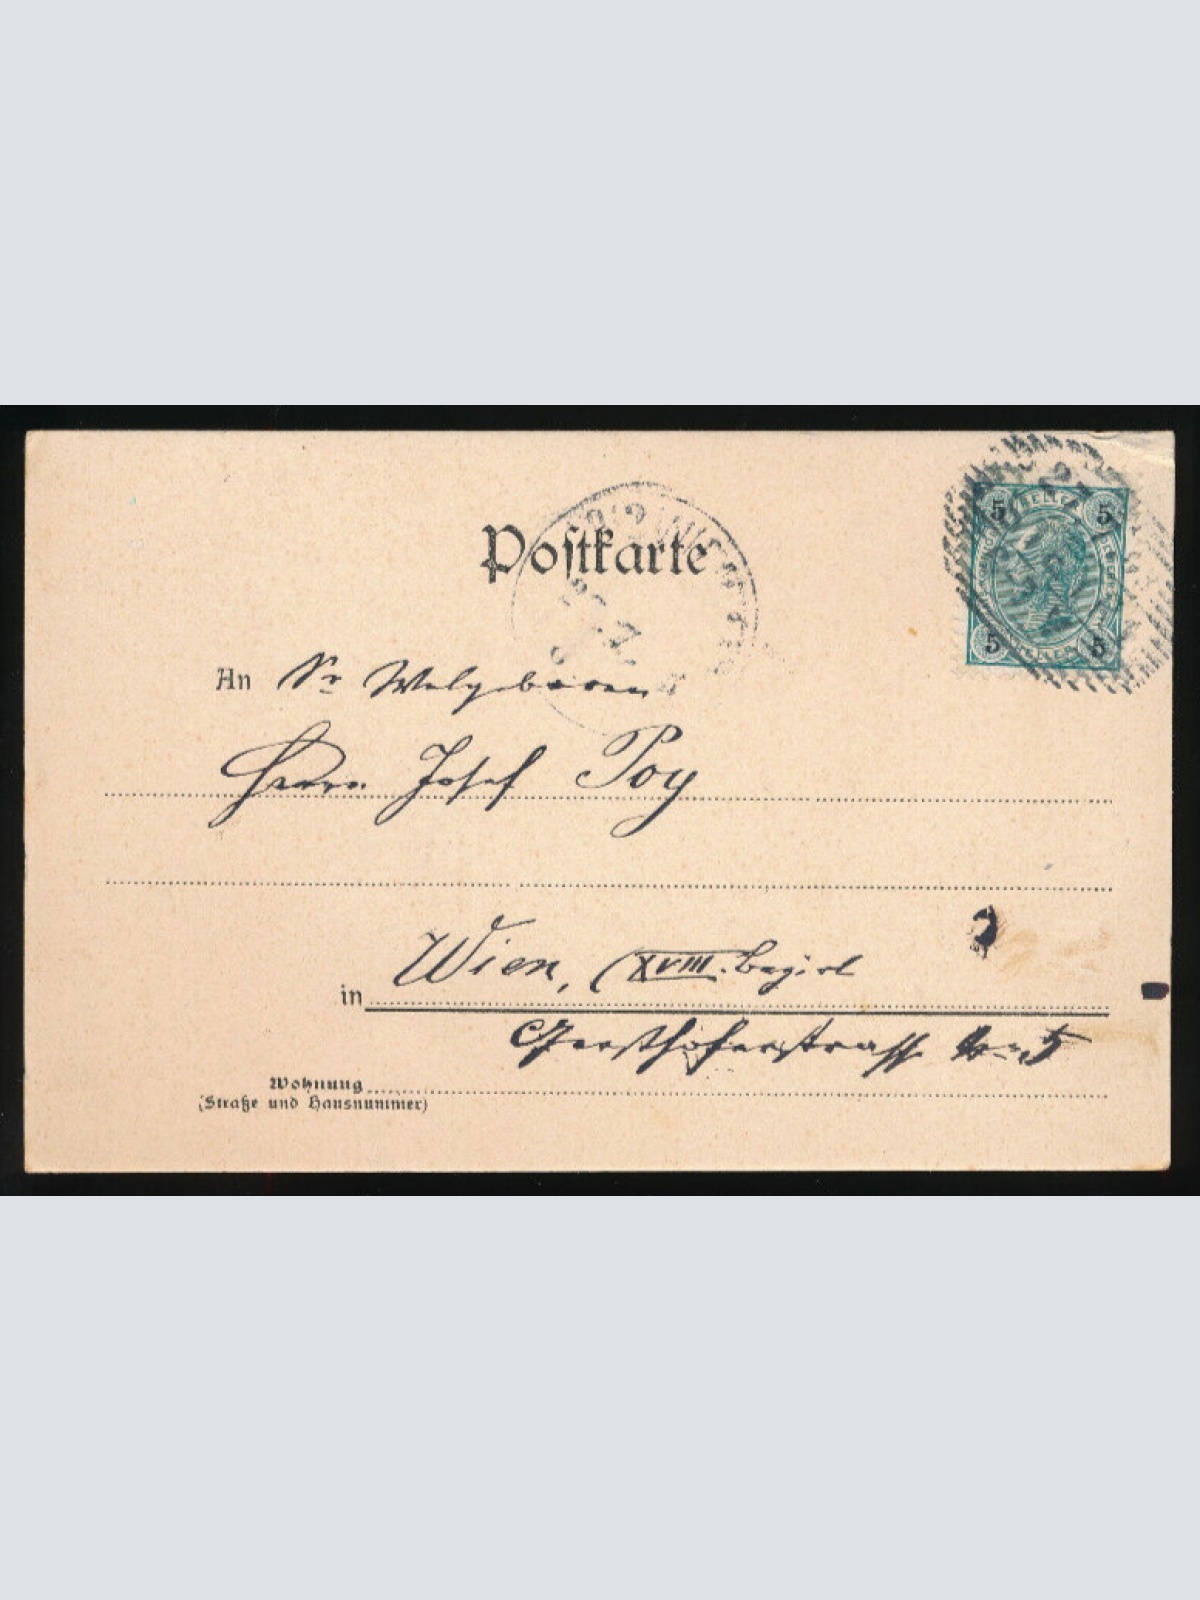 Postkarte
5 5
5 5
An Sr Wolgeboren
Herrn Josef Poy
in Wien, XVIII. Bezirk
Gersthoferstrasse No 5
Wohnung
(Straße und Hausnummer)